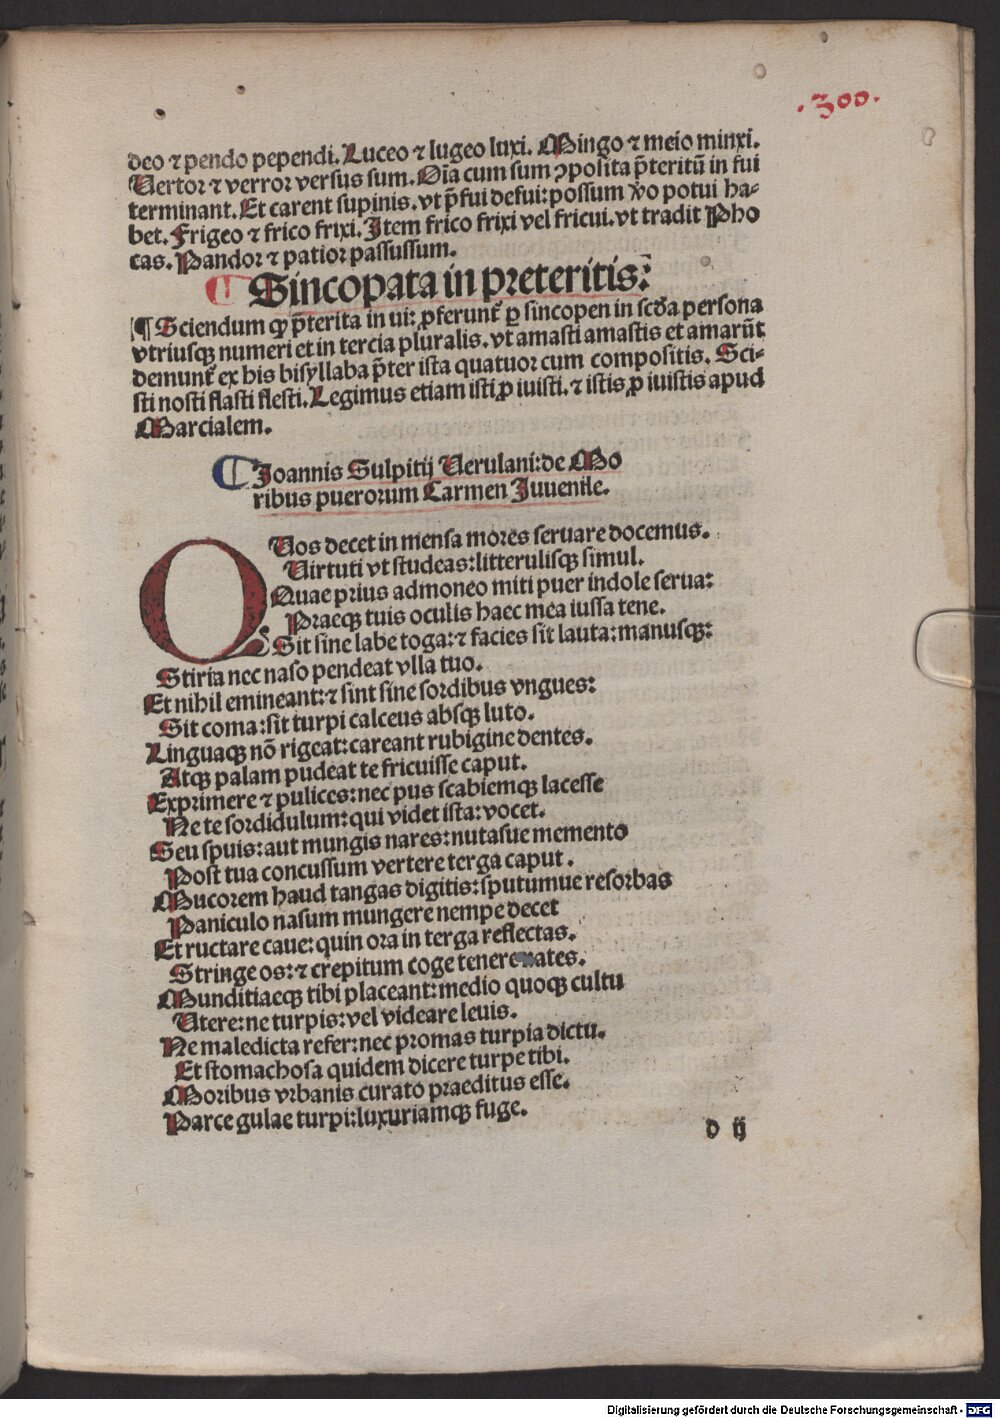 .300.
deo ⁊ pendo pependi. Luceo ⁊ lugeo luxi. Mingo ⁊ meio minxi.
Uertor ⁊ verror versus sum. Oīa cum sum ꝯposita p̄teritū in fui
terminant. Et carent supinis. vt p̄fui defui: possum ꝟo potui ha-
bet. Frigeo ⁊ frico frixi. Item frico frixi vel fricui. vt tradit Pho
cas. Pandor ⁊ patior passussum.
¶ Sincopata in preteritis.
¶ Sciendum ꝙ p̄terita in ui: ꝓferunt᷑ ꝑ sincopen in scd̄a persona
vtriusqꝫ numeri et in tercia pluralis. vt amasti amastis et amarūt
demunt᷑ ex his bisyllaba p̄ter ista quatuor cum compositis. Sci-
sti nosti flasti flesti. Legimus etiam isti ꝓ iuisti. ⁊ istis ꝓ iuistis apud
Marcialem.
¶ Joannis Sulpitij Uerulani: de Mo
ribus puerorum Carmen Juuenile.
QUos decet in mensa mores seruare docemus.
Uirtuti vt studeas: litterulisqꝫ simul.
Quae prius admoneo miti puer indole serua:
Praeqꝫ tuis oculis haec mea iussa tene.
Sit sine labe toga: ⁊ facies sit lauta: manusqꝫ:
Stiria nec naso pendeat vlla tuo.
Et nihil emineant: ⁊ sint sine sordibus vngues:
Sit coma: sit turpi calceus absqꝫ luto.
Linguaqꝫ nō rigeat: careant rubigine dentes.
Atqꝫ palam pudeat te fricuisse caput.
Exprimere ⁊ pulices: nec pus scabiemqꝫ lacesse
Ne te sordidulum: qui videt ista: vocet.
Seu spuis: aut mungis nares: nutasue memento
Post tua concussum vertere terga caput.
Mucorem haud tangas digitis: sputumue resorbas
Paniculo nasum mungere nempe decet
Et ructare caue: quin ora in terga reflectas.
Stringe os: ⁊ crepitum coge tenere nates.
Munditiaeqꝫ tibi placeant: medio quoqꝫ cultu
Utere: ne turpis: vel videare leuis.
Ne maledicta refer: nec promas turpia dictu.
Et stomachosa quidem dicere turpe tibi.
Moribus vrbanis curato praeditus esse.
Parce gulae turpi: luxuriamqꝫ fuge.
d ij
Digitalisierung gefördert durch die Deutsche Forschungsgemeinschaft - DFG